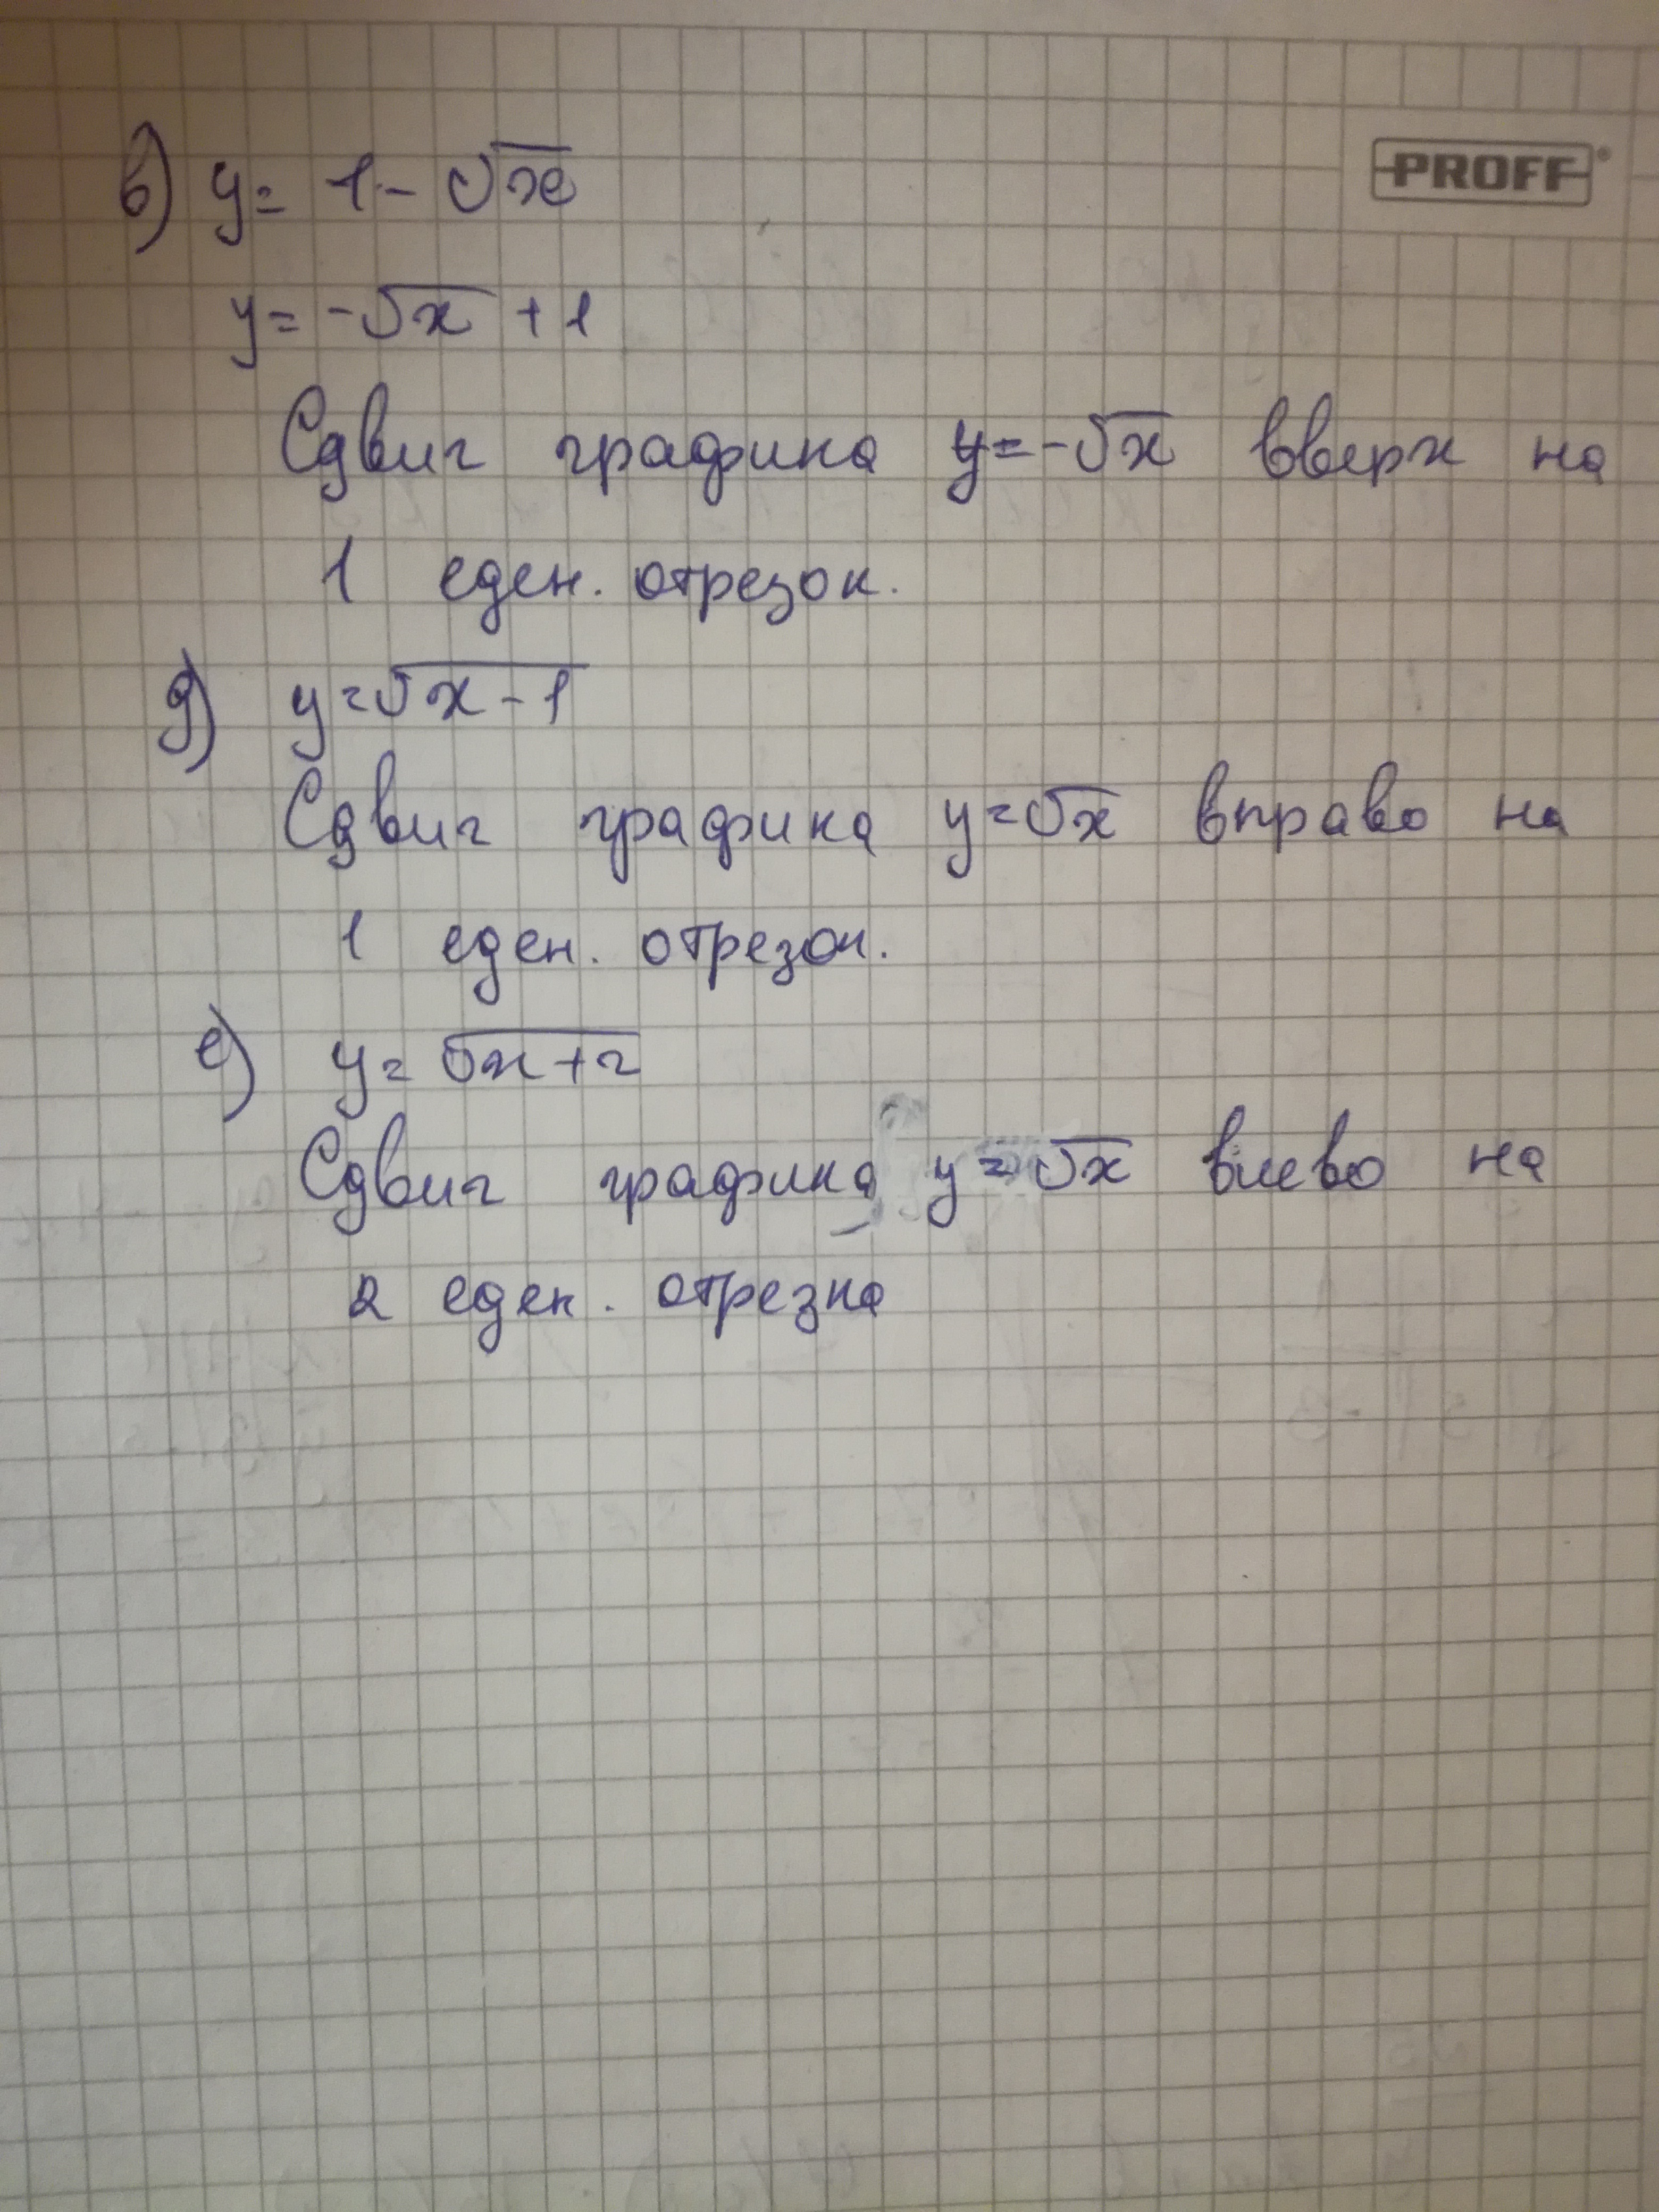 PROFF
в) y = 1 - √x
y = -√x + 1
Сдвиг графика y = -√x вверх на
1 еден. отрезок.
д) y = √x - 1
Сдвиг графика y = √x вправо на
1 еден. отрезок.
е) y = √x + 2
Сдвиг графика y = √x влево на
2 еден. отрезка